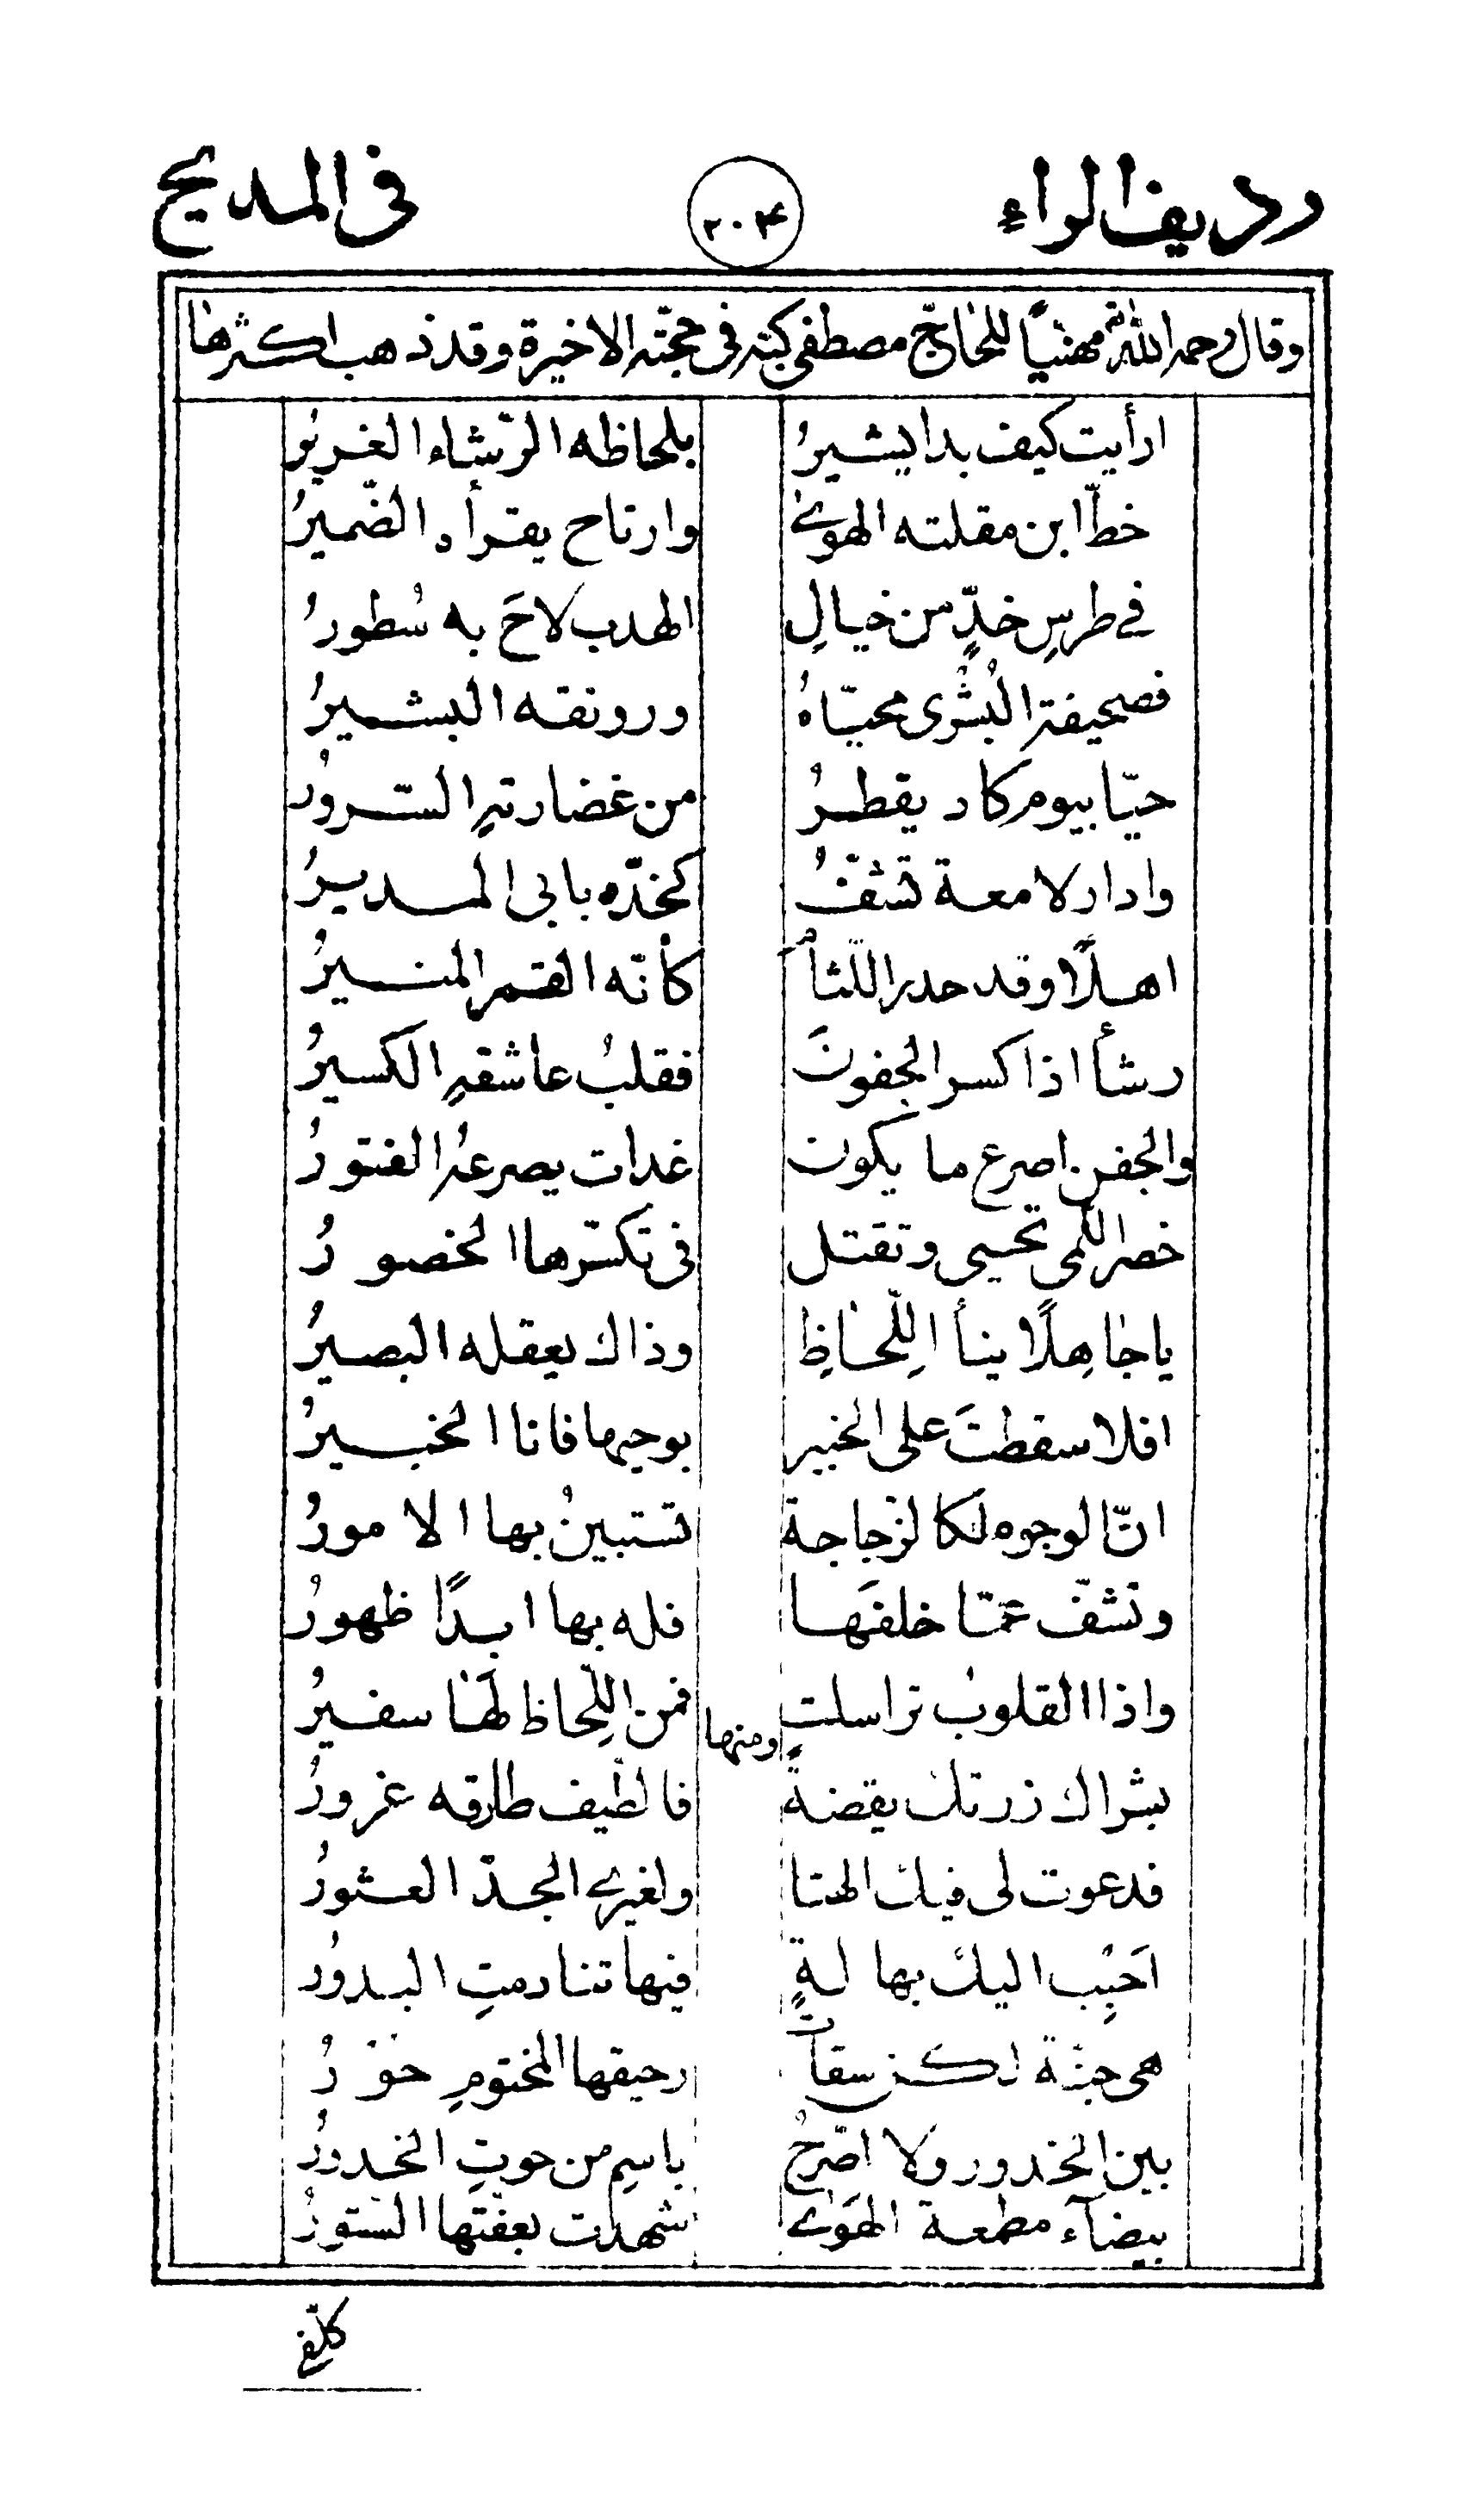 رديف الراء ٢٠٣ في المديح
وقال رحمه الله مهنياً للحاج مصطفى كبه في حجته الاخيرة وقد ذهب اكثرها
ارأيت كيف بدا يشيرُ بلحاظه الرّشاء الغريرُ
خطّ ابن مقلته الهوىٰ وارتاح يقرأه الضّميرُ
في طرسِ خدٍّ من خيالِ الهدب لاحَ به سُطورُ
فصحيفة البُشْرى محيّاهُ ورونقه البشيرُ
حيّا بيوم كاد يقطرُ من غضارتهِ السّرورُ
وادار لامعة تشفّ كخدّه بابى المديرُ
اهلًا وقد حدر اللّثامُ كأنّه القمر المنيرُ
رشأ اذا كسر الجفونَ فقلبُ عاشقهِ الكسيرُ
والجفن اصرع ما يكون غدات يصرعهُ الفتورُ
خصر اللّمى تحيى وتقتل فى تكسّرها الخصورُ
يا جاهِلًا ينبأ اللِّحاظِ وذاك يعقله البصيرُ
افلا سقطتَ على الخبير بوحيها فانا الخبيرُ
انّ الوجوه لكالزجاجة تستبينُ بها الامورُ
وتشفّ عمّا خلفَها فله بها ابداً ظهورُ
واذا القلوب تراسلت فمن اللِّحاظ لهَا سفيرُ
ومنها
بشراك زرتك يقضةً فالطّيف طارقه غرورُ
فدعوت لى فيك الهنا ولغيرى الجدّ العثورُ
احَبِب اليك بهالةٍ فيها تنادمتِ البدورُ
هى جنّة لكن سقاتُ رحيقها المختومِ حوْرُ
بين الخدور ولا اصّرحُ باسمِ من حوتِ الخدورُ
بيضآء مطمعة الهَوىٰ شهدت بعفّتها السّتورُ
كلّف